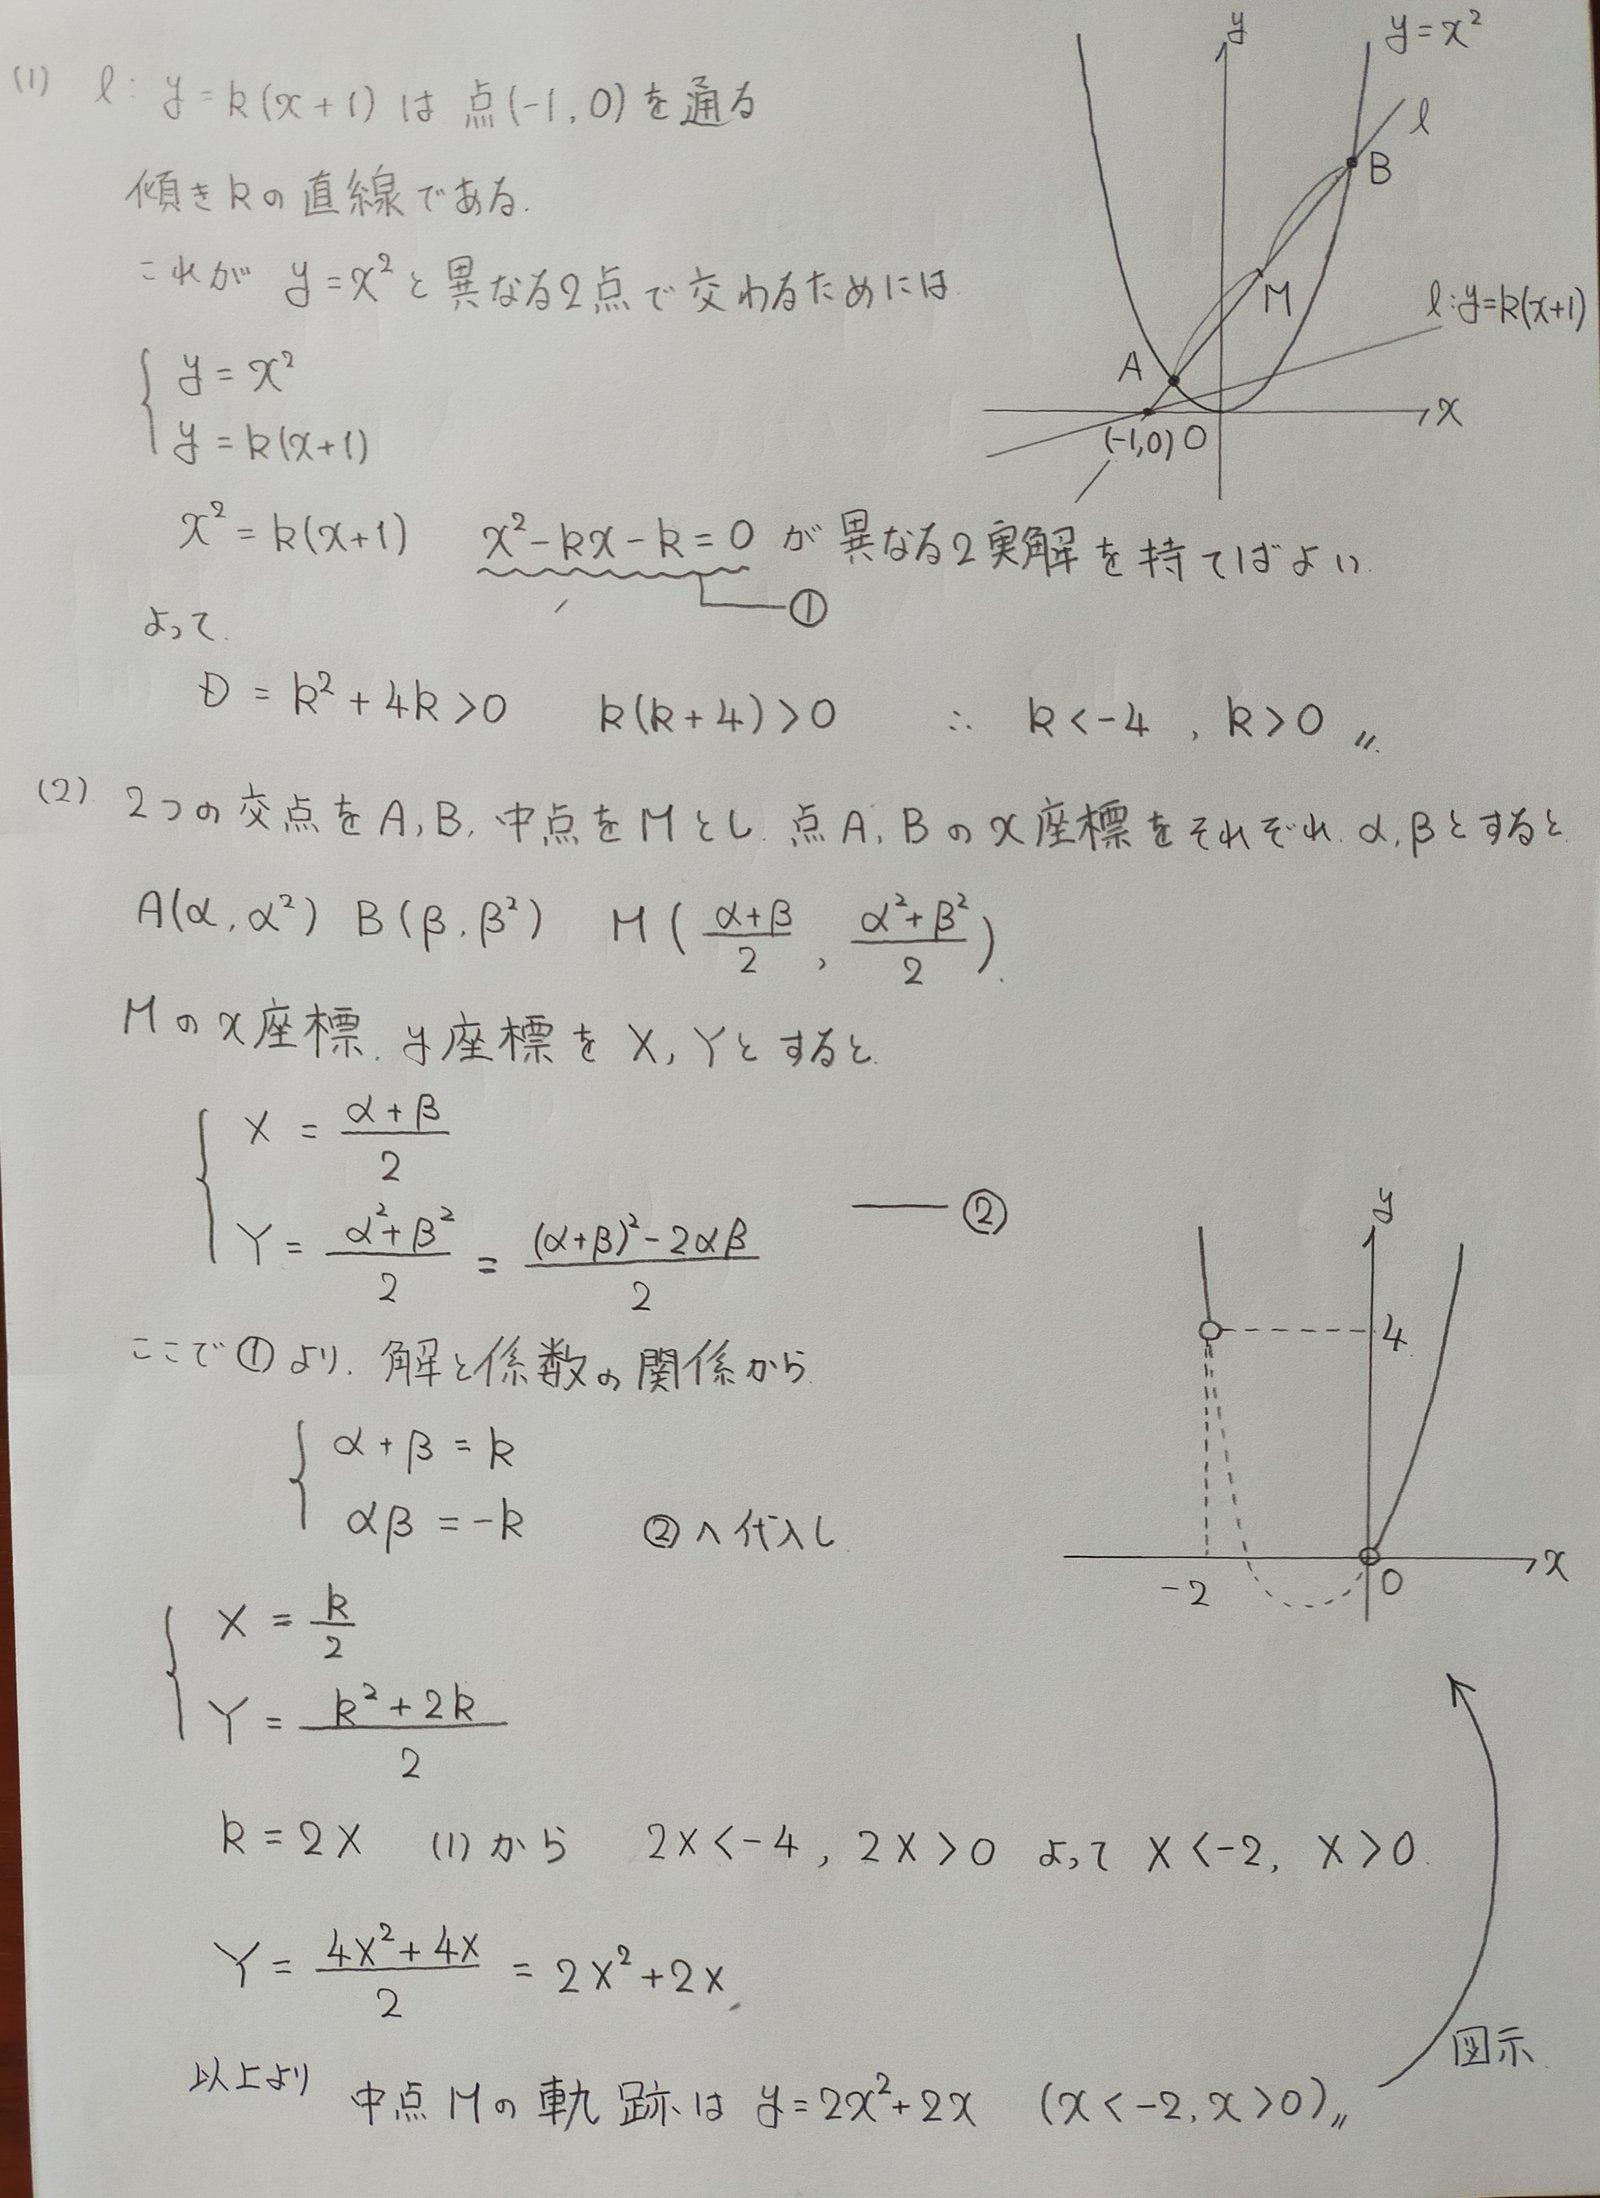 (1) l: y=k(x+1) は 点(-1, 0)を通る
傾きkの直線である.
これが y=x² と異なる2点で交わるためには
y=x²
y=k(x+1)
x²=k(x+1) x²-kx-k=0 が異なる2実解を持てばよい
①
よって
D = k²+4k>0 k(k+4)>0 ∴ k<-4 , k>0 〃
y
y=x²
l
B
M
l:y=k(x+1)
A
x
(-1,0) O
(2) 2つの交点をA, B, 中点をMとし. 点A, Bのx座標をそれぞれ α, βとすると
A(α, α²) B(β, β²) M(\frac{α+β}{2}, \frac{α²+β²}{2}).
Mのx座標. y座標をX, Yとすると
X = \frac{α+β}{2}
Y = \frac{α²+β²}{2} = \frac{(α+β)²-2αβ}{2} ― ②
ここで①より. 解と係数の関係から
α+β = k
αβ = -k ②へ代入し
X = \frac{k}{2}
Y = \frac{k²+2k}{2}
y
4
-2
O
x
k=2X (1)から 2X<-4, 2X>0 よって X<-2, X>0.
Y = \frac{4X²+4X}{2} = 2X²+2X
図示
以上より 中点Mの軌跡は y=2x²+2x (x<-2, x>0)〃